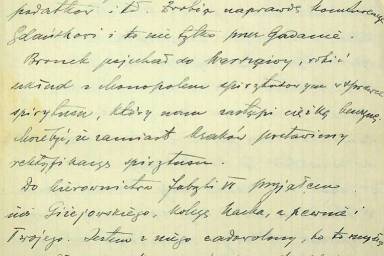 podatków i td. Zrobią naprawdę konkurencję
Gdańskowi i to nie tylko przez Gadanie.
Bronek pojechał do Warszawy, robić
układ z Monopolem spirytusowym w sprawie
spirytusu, który nam zastąpi ciężką benzynę
może być, że zamiast kraków postawimy
rektyfikację spirytusu.
Do kierownictwa fabryki przyjąłem
inż Giżejowskiego, kolegę Kacka, a pewnie i
Twojego. Jestem z niego zadowolony, bo to